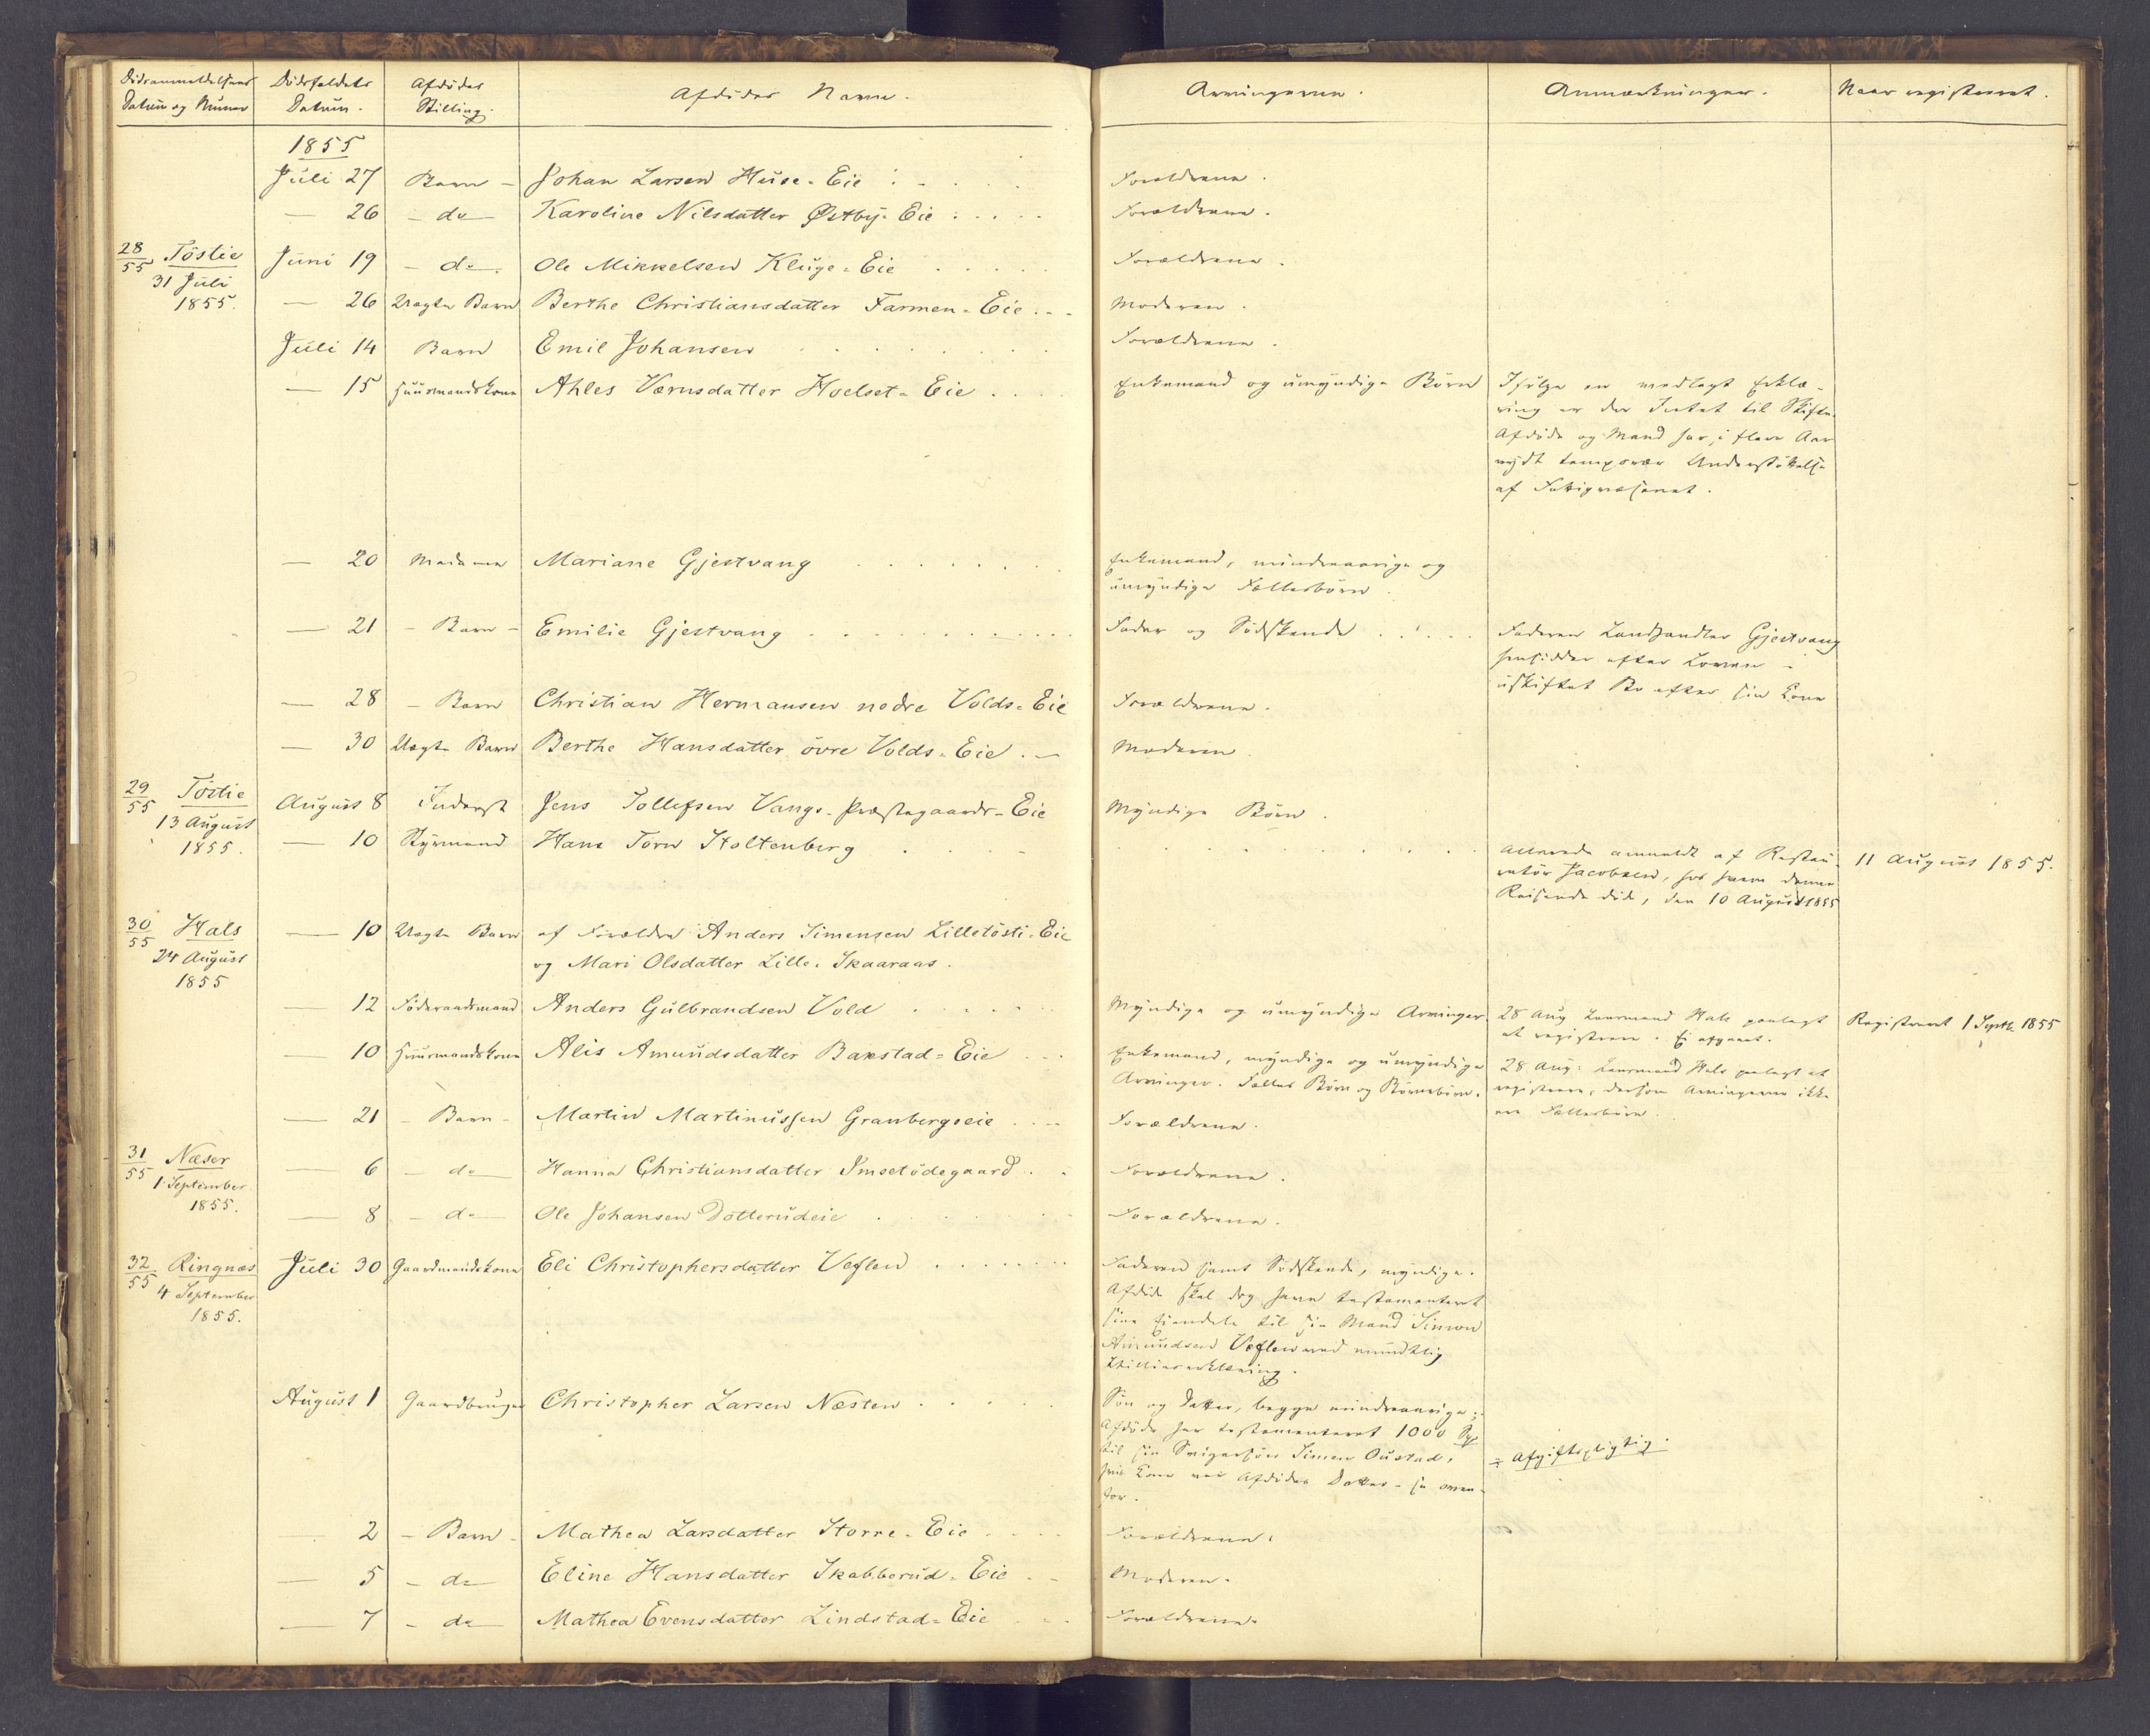 Dödsanmeldelsens Datum og Numer | Dödsfaldets Datum. | Afdödes Stilling. | Afdödes Navn. | Arvingerne. | Anmærkninger. | Naar registreret.
1855
Juli 27 | Barn | Johan Larsen Huse-Eie | Forældrene.
— 26 | do | Karoline Nilsdatter Østby-Eie | Forældrene.
28/55 Töstie | Juni 19 | do | Ole Mikkelsen Kluge-Eie | Forældrene.
31 Juli
1855. | — 26 | Uægte Barn | Berthe Christiansdatter Farmen-Eie | Moderen.
Juli 14 | Barn | Emil Johansen | Forældrene.
— 15 | Huusmandskone | Ahles Værnsdatter Hoelset-Eie | Enkemand og umyndige Börn | Ifølge en medlagt Erklæ-
ring er der Intet til Skifte.
Afdöde og Mand har i flere Aar
nydt temporær Understöttelse
af Fattigvæsenet.
— 20 | Madame | Mariane Gjestvang | Enkemand, mindreaarige og
umyndige Fællesbörn.
— 21 | Barn | Emilie Gjestvang | Fader og Södskende | Faderen Landhandler Gjestvang
hensidder efter Loven i
uskiftet Bo efter sin Kone
— 28 | Barn | Christian Hermansen nedre Volds-Eie | Forældrene.
— 30 | Uægte Barn | Berthe Hansdatter övre Volds-Eie | Moderen
29/55 Töstie | August 8 | Inderst | Jens Tollefsen Vangs-Præstegaards-Eie | Myndige Börn.
13 August
1855. | — 10 | Styrmand | Hans Törn Stoltenberg | Allerede anmeldt af Restau- | 11 August 1855.
ratör Jacobsen, hos hvem denne
Reisende döde, den 10 August 1855
30/55 Hals | — 10 | Uægte Barn | af Forældre Anders Simensen Lilletösti-Eie
24 August | og Mari Olsdatter Lille-Skaaraas.
1855
— 12 | Föderaadsmand | Anders Gulbrandsen Vold | Myndige og umyndige Arvinger. | 28 Aug Lensmand Hals paalagt | Registreret 1 Septb. 1855
at registrere. Ei afgaaet.
— 10 | Huusmandskone | Alis Amundsdatter Bakstad-Eie | Enkemand, myndige og umyndige | 28 Aug. Lensmand Hals paalagt at
Arvinger. Fælles Börn og Börnebörn. | registrere, dersom Arvingerne ikke
ere Fællesbörn.
— 21 | Barn | Martin Martinussen Granbergseie | Forældrene.
31/55 Næser | — 6 | do | Hanna Christiansdatter Imsetödegaard | Forældrene.
1 September
1855. | — 8 | do | Ole Johansen Dotterudeie | Forældrene.
32/55 Ringnæs | Juli 30 | Gaardmandskone | Eli Christophersdatter Veflen | Faderen samt Södskende, myndige.
4 September | Afdöde skal dog have testamenteret
1855. | sine Eiendele til sin Mand Simon
Amundsen Veflen ved mundtlig
Villieserklæring.
August 1 | Gaardbruger | Christopher Larsen Næsten | Sön og Datter, begge mindreaarige;
Afdöde har testamenteret 1000 Spd
til sin Svigersön Simen Oustad, | ÷ Afgiftspligtig.
hvis Kone var Afdödes Datter - se oven-
for.
— 2 | Barn | Mathea Larsdatter Storre-Eie | Forældrene.
— 5 | do | Eline Hansdatter Skabberud-Eie | Moderen.
— 7 | do | Mathea Evensdatter Lindstad-Eie | Forældrene.